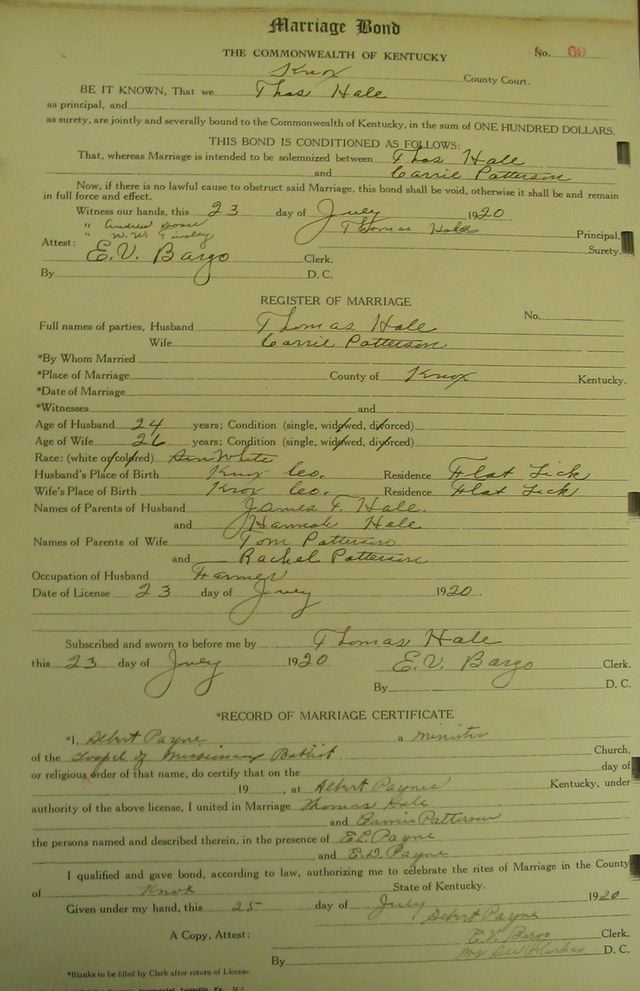 Marriage Bond
THE COMMONWEALTH OF KENTUCKY
No. 69
Knox County Court.
BE IT KNOWN, That we Thos Hale
as principal, and
as surety, are jointly and severally bound to the Commonwealth of Kentucky, in the sum of ONE HUNDRED DOLLARS.
THIS BOND IS CONDITIONED AS FOLLOWS:
That, whereas Marriage is intended to be solemnized between Thos Hale
and Carrie Patterson
Now, if there is no lawful cause to obstruct said Marriage, this bond shall be void, otherwise it shall be and remain
in full force and effect.
Witness our hands, this 23 day of July 1920.
" Andrew Thomas Hale Principal.
" W. W. Tinsley Surety.
Attest: E. V. Bargo Clerk.
By D. C.
REGISTER OF MARRIAGE
Full names of parties, Husband Thomas Hale No.
Wife Carrie Patterson
*By Whom Married
*Place of Marriage County of Knox Kentucky.
*Date of Marriage
*Witnesses and
Age of Husband 24 years; Condition (single, widowed, divorced)
Age of Wife 26 years; Condition (single, widowed, divorced)
Race: (white or colored) White
Husband's Place of Birth Knox Co. Residence Flat Lick
Wife's Place of Birth Knox Co. Residence Flat Lick
Names of Parents of Husband James F. Hale.
and Hannah Hale
Names of Parents of Wife Tom Patterson
and Rachel Patterson
Occupation of Husband Farmer
Date of License 23 day of July 1920.
Subscribed and sworn to before me by Thomas Hale
this 23 day of July 1920 E. V. Bargo Clerk.
By D. C.
*RECORD OF MARRIAGE CERTIFICATE
*I, Albert Payne a minister
of the Gospel of Missionary Babtist Church,
or religious order of that name, do certify that on the day of
19 , at Albert Paynes Kentucky, under
authority of the above license, I united in Marriage Thomas Hale
and Patterson
the persons named and described therein, in the presence of E L Payne
and E. D. Payne
I qualified and gave bond, according to law, authorizing me to celebrate the rites of Marriage in the County
of Knox State of Kentucky.
Given under my hand, this 25 day of July 1920
Albert Payne
A Copy, Attest: E. V. Bargo Clerk.
By D. C.
*Blanks to be filled by Clerk after return of License.